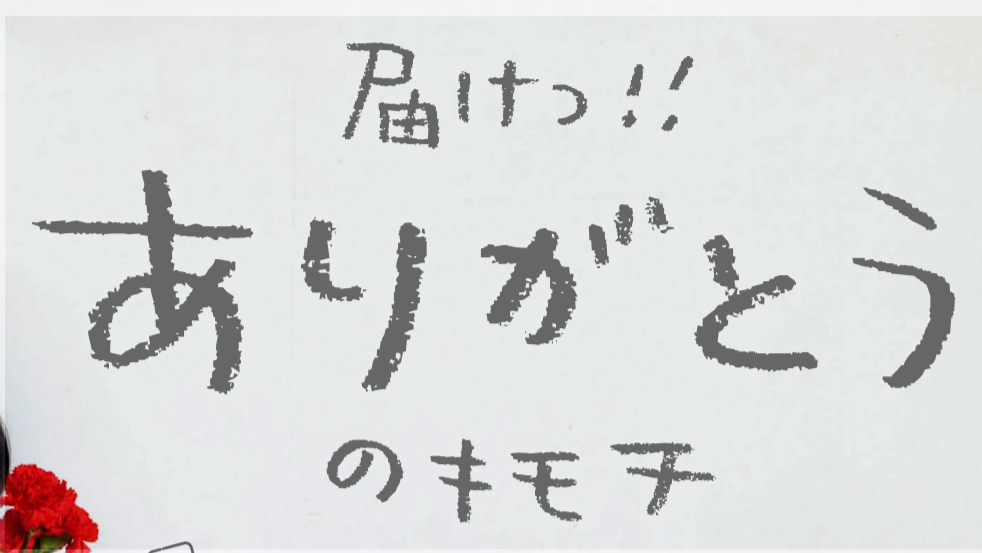 届けっ!!
ありがとう
のキモチ